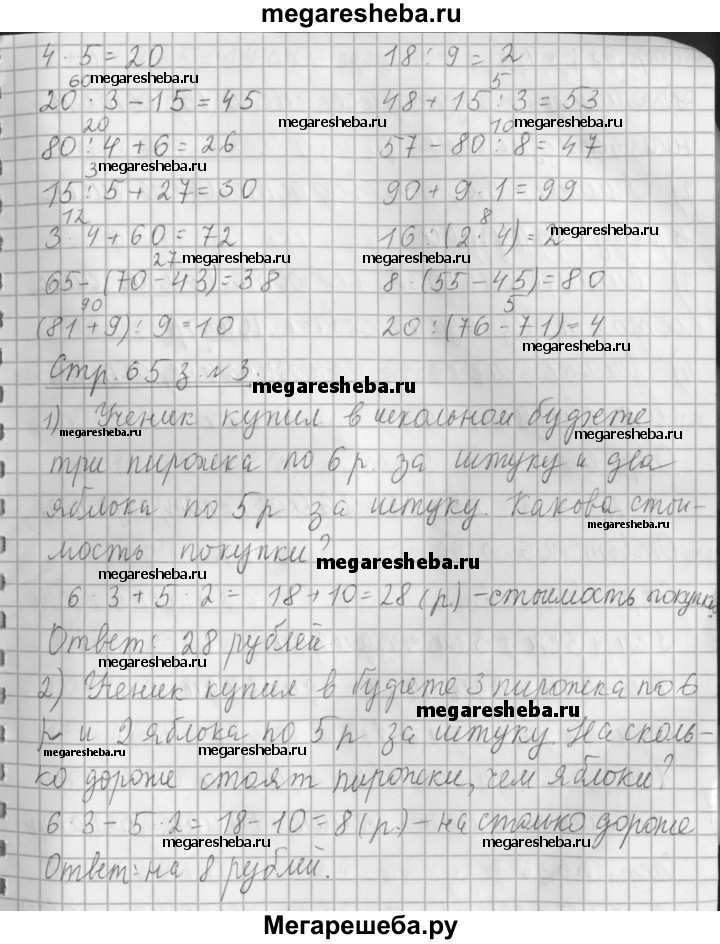 megaresheba.ru
4 · 5 = 20 18 : 9 = 2
60 megaresheba.ru 5
20 · 3 - 15 = 45 48 + 15 : 3 = 53
20 megaresheba.ru 10 megaresheba.ru
80 : 4 + 6 = 26 57 - 80 : 8 = 47
3 megaresheba.ru
15 : 5 + 27 = 30 90 + 9 · 1 = 99
12 8
3 · 4 + 60 = 72 16 : (2 · 4) = 2 megaresheba.ru
27 megaresheba.ru megaresheba.ru
65 - (70 - 43) = 38 8 · (55 - 45) = 80
90 5
(81 + 9) : 9 = 10 20 : (76 - 71) = 4
Стр. 65 з. №3. megaresheba.ru
1) Ученик купил в школьном буфете
megaresheba.ru megaresheba.ru
три пирожка по 6 р. за штуку и два
яблока по 5 р за штуку. Какова стои-
megaresheba.ru
мость покупки? megaresheba.ru
megaresheba.ru
6 · 3 + 5 · 2 = 18 + 10 = 28 (р) - стоимость покупки
megaresheba.ru
Ответ: 28 рублей.
megaresheba.ru
2) Ученик купил в буфете 3 пирожка по 6
megaresheba.ru
р и 2 яблока по 5 р за штуку. На сколь-
megaresheba.ru megaresheba.ru
ко дороже стоят пирожки, чем яблоки?
6 · 3 - 5 · 2 = 18 - 10 = 8 (р.) - на столько дороже
megaresheba.ru megaresheba.ru
Ответ: на 8 рублей.
Мегарешеба.ру